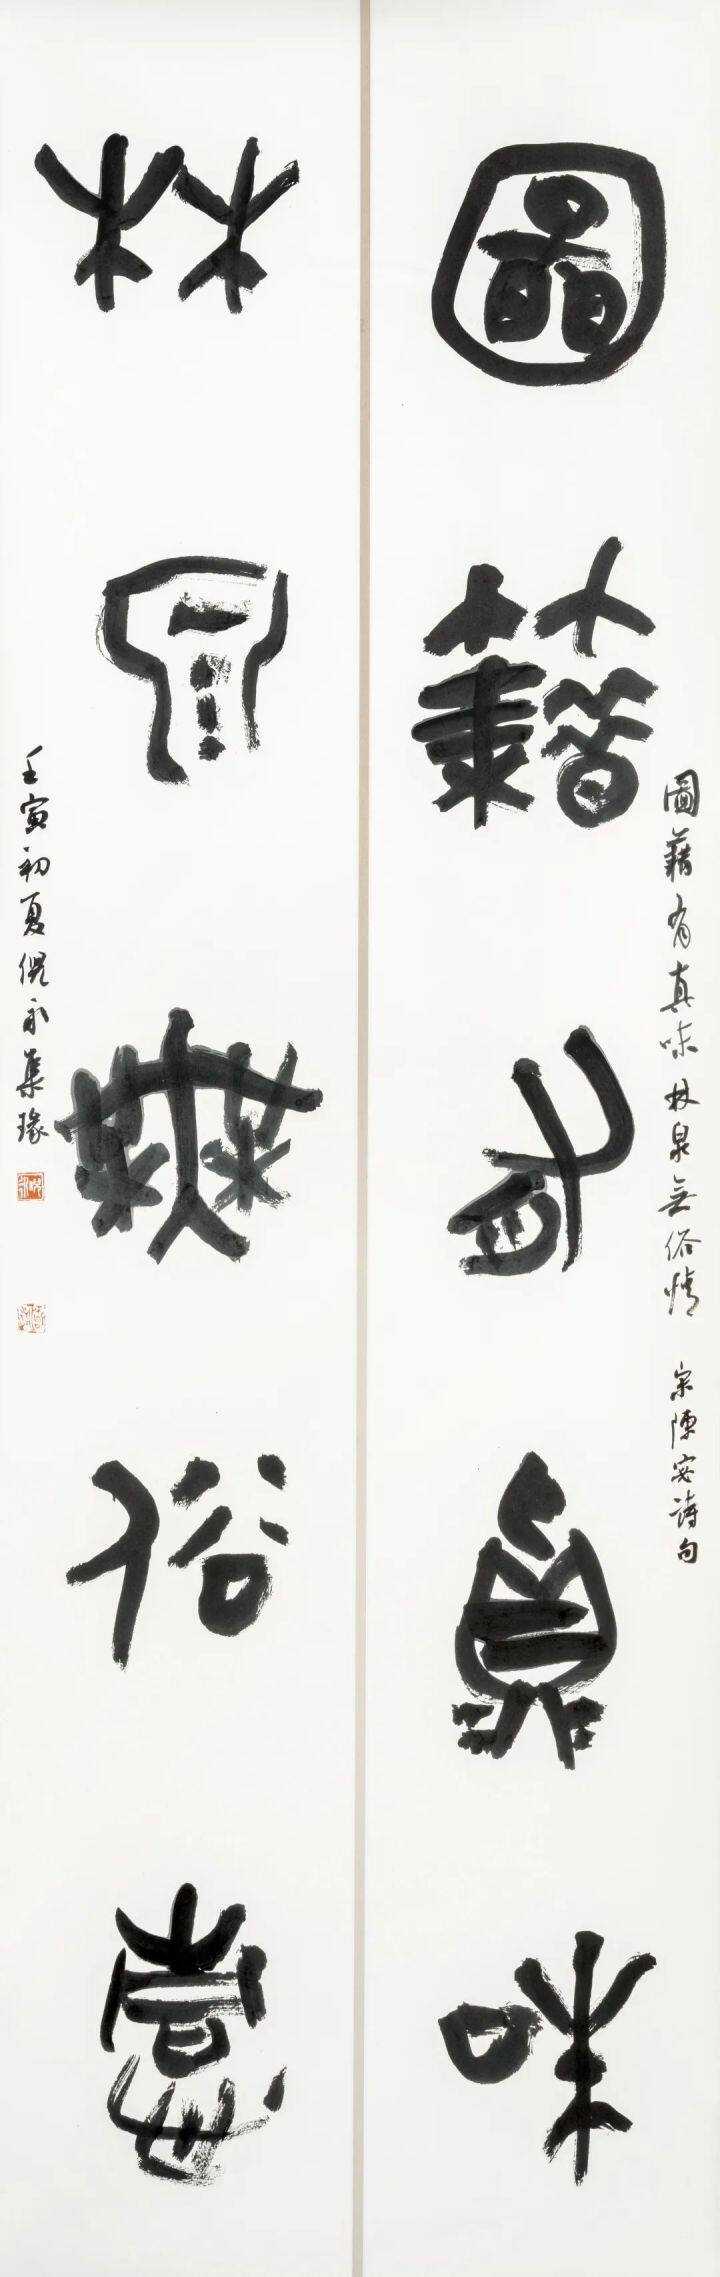 圖籍有真味
圖藉有真味林泉無俗情 宋陳宓詩句
林泉無俗情
壬寅初夏倪永集